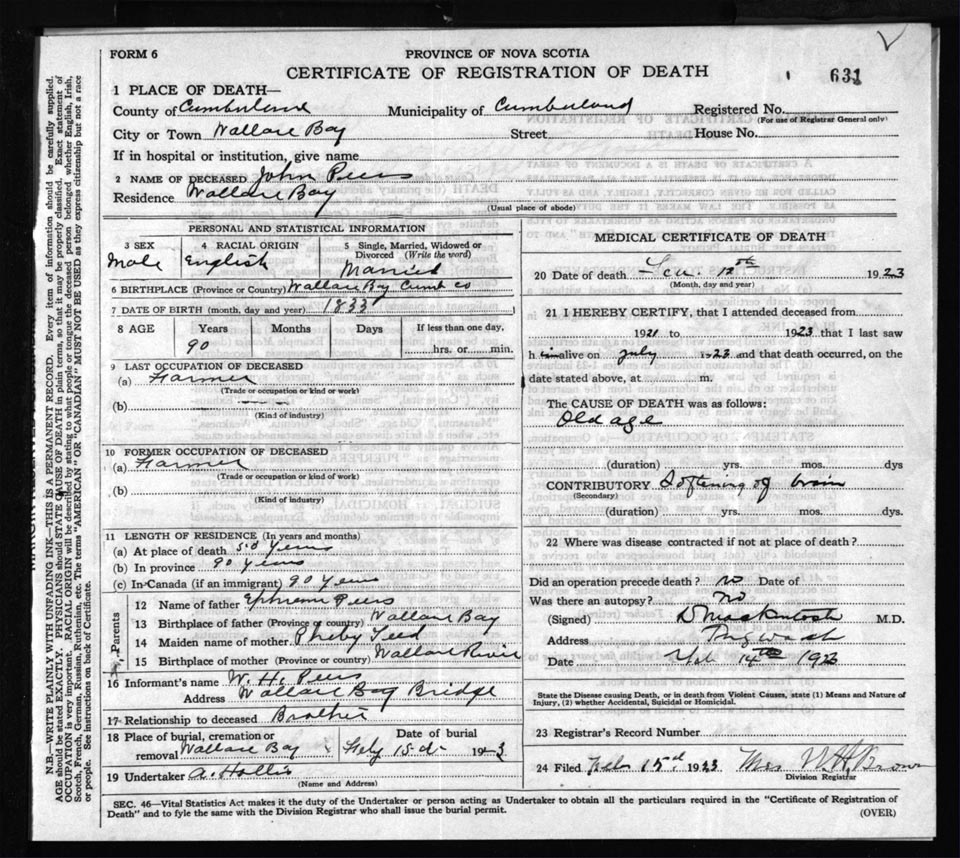 FORM 6
PROVINCE OF NOVA SCOTIA
CERTIFICATE OF REGISTRATION OF DEATH
631
1 PLACE OF DEATH—
County of Cumberland Municipality of Cumberland Registered No.
(For use of Registrar General only)
City or Town Wallace Bay Street House No.
If in hospital or institution, give name
2 NAME OF DECEASED John Peers
Residence Wallace Bay
(Usual place of abode)
PERSONAL AND STATISTICAL INFORMATION
3 SEX 4 RACIAL ORIGIN 5 Single, Married, Widowed or Divorced (Write the word)
Male English Married
6 BIRTHPLACE (Province or Country) Wallace Bay Cumb Co
7 DATE OF BIRTH (month, day and year) 1833
8 AGE Years Months Days If less than one day,
90 hrs. or min.
9 LAST OCCUPATION OF DECEASED
(a) Farmer
(Trade or occupation or kind or work)
(b)
(Kind of industry)
10 FORMER OCCUPATION OF DECEASED
(a) Farmer
(Trade or occupation or kind or work)
(b)
(Kind of industry)
11 LENGTH OF RESIDENCE (In years and months)
(a) At place of death 50 years
(b) In province 90 years
(c) In Canada (if an immigrant) 90 years
Parents
12 Name of father Ephraim Peers
13 Birthplace of father (Province or country) Wallace Bay
14 Maiden name of mother Pheby Teed
15 Birthplace of mother (Province or country) Wallace River
16 Informant's name W. H. Peers
Address Wallace Bay Bridge
17 Relationship to deceased Brother
18 Place of burial, cremation or removal Wallace Bay Date of burial 15 1923
19 Undertaker A. Hollis
(Name and Address)
MEDICAL CERTIFICATE OF DEATH
20 Date of death 12th 1923
(Month, day and year)
21 I HEREBY CERTIFY, that I attended deceased from
1921 to 1923 that I last saw
h im alive on July 1923 and that death occurred, on the
date stated above, at m.
The CAUSE OF DEATH was as follows:
Old age
(duration) yrs. mos. dys
CONTRIBUTORY Softening of brain
(Secondary)
(duration) yrs. mos. dys.
22 Where was disease contracted if not at place of death?
Did an operation precede death? no Date of
Was there an autopsy? no
(Signed) D Mackintosh M.D.
Address Pugwash
Date Feb 14th 1923
State the Disease causing Death, or in death from Violent Causes, state (1) Means and Nature of
Injury, (2) whether Accidental, Suicidal or Homicidal.
23 Registrar's Record Number
24 Filed Feb 15th 1923 Mrs Brown
Division Registrar
SEC. 46—Vital Statistics Act makes it the duty of the Undertaker or person acting as Undertaker to obtain all the particulars required in the "Certificate of Registration of
Death" and to fyle the same with the Division Registrar who shall issue the burial permit.
(OVER)
N.B.—WRITE PLAINLY WITH UNFADING INK—THIS IS A PERMANENT RECORD. Every item of information should be carefully supplied.
AGE should be stated EXACTLY. PHYSICIANS should STATE CAUSE OF DEATH in plain terms, so that it may be properly classified. Exact statement of
OCCUPATION is very important. RACIAL ORIGIN will be described by stating to what people or tongue the deceased person belonged, whether English, Irish,
Scotch, French, German, Russian, Ruthenian, etc. The terms "AMERICAN" OR "CANADIAN" MUST NOT BE USED as they express citizenship but not a race
or people. See instructions on back of Certificate.